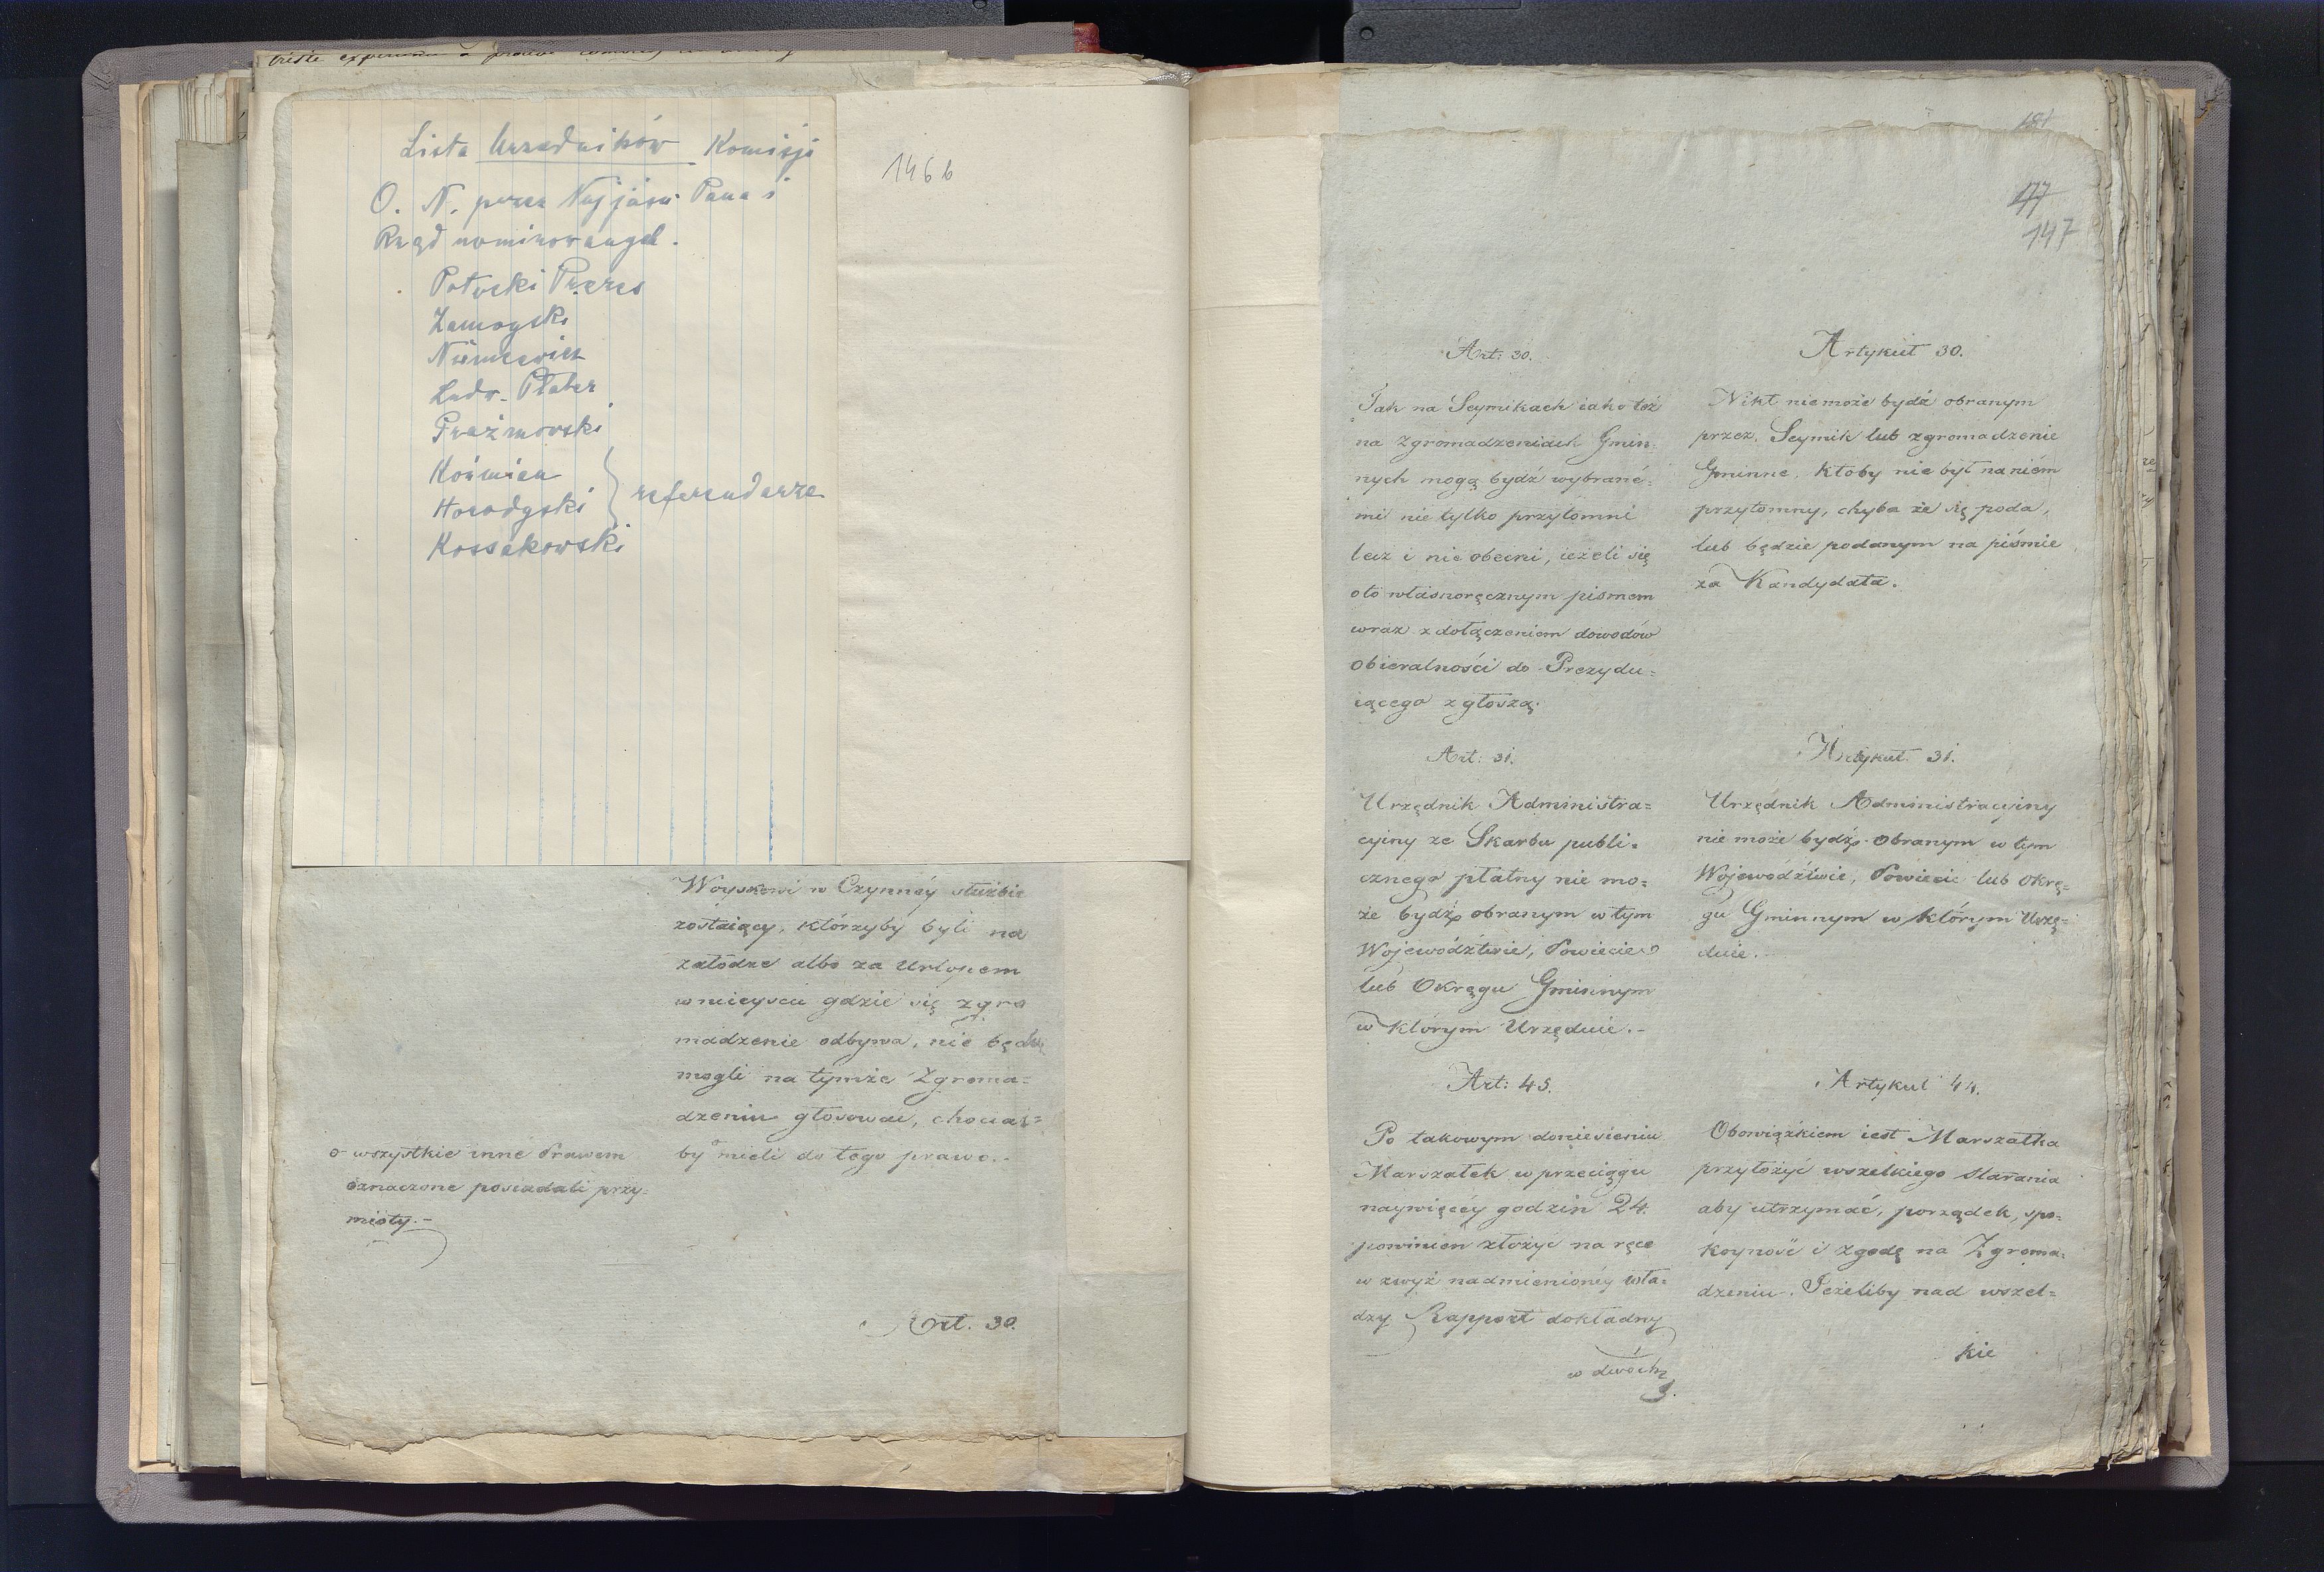 Lista Urzedników Komisji
O. N. przez Najjaśn. Pana i
Rząd nominowanych.
Potocki Prezes
Zamoyski
Niemcewicz
Ludw. Plater
Prażmowski
Koźmian
Horodyski
referendarze
Kossakowski
146b
Woyskowi w Czynnéy służbie
zostaiący, którzyby byli na
załodze albo za Urlopem
w mieyscu gdzie się zgro
madzenie odbywa, nie będą
mogli na tymże Zgroma=
dzeniu głosować, chociaż=
by mieli do tego prawo.-
o wszystkie inne Prawem
oznaczone posiadali przy=
mioty.-
Art. 30.
181
177
147
Art: 30.
Jak na Seymikach iako też
na Zgromadzeniach Gmin
nych mogą bydź wybrané=
mi nie tylko przytomni
lecz i nie obecni, ieżeli się
oto własnoręcznym pismem
wraz z dołączeniem dowodów
obieralności do Prezydu=
iącego zgłoszą.
Art: 31.
Urzędnik Administra=
cyiny ze Skarbu publi=
cznego płatny nie mo=
że bydź obranym w tym
Wojewódźtwie, Powiecie
lub Okręgu Gminnym
w którym Urzęduie.-
Art: 45.
Po takowym doniesieniu
Marszałek w przeciągu
naywięcéy godzin 24.
powinien złożyć na ręce
w zwyż nadmienionéy wła=
dzy Rapport dokładny
w dwóch
Artykuł 30.
Nikt niemoże bydź obranym
przez Seymik lub zgromadzenie
Gminne, ktoby nie był na niém
przytomny, chyba że się poda,
lub będzie podanym na piśmie
za Kandydata.
Artykuł 31.
Urzędnik Administracyiny
nie może bydź obranym w tym
Wojewódźtwie, Powiecie lub Okrę=
gu Gminnym w którym Urzę=
duie.-
Artykuł 44.
Obowiązkiem iest Marszałka
przyłożyć wszelkiego Starania
aby utrzymać, porządek, spo=
koyność i zgodę na Zgroma=
dzeniu. Jeżeliby nad wszel=
kie